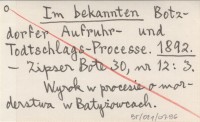 Im bekannten Botz-
dorfer Aufruhr- und
Todtschlags-Processe. 1892.
– Zipser Bote 30, nr 12: 3.
Wyrok w procesie o mor-
derstwa w Batyżowcach.